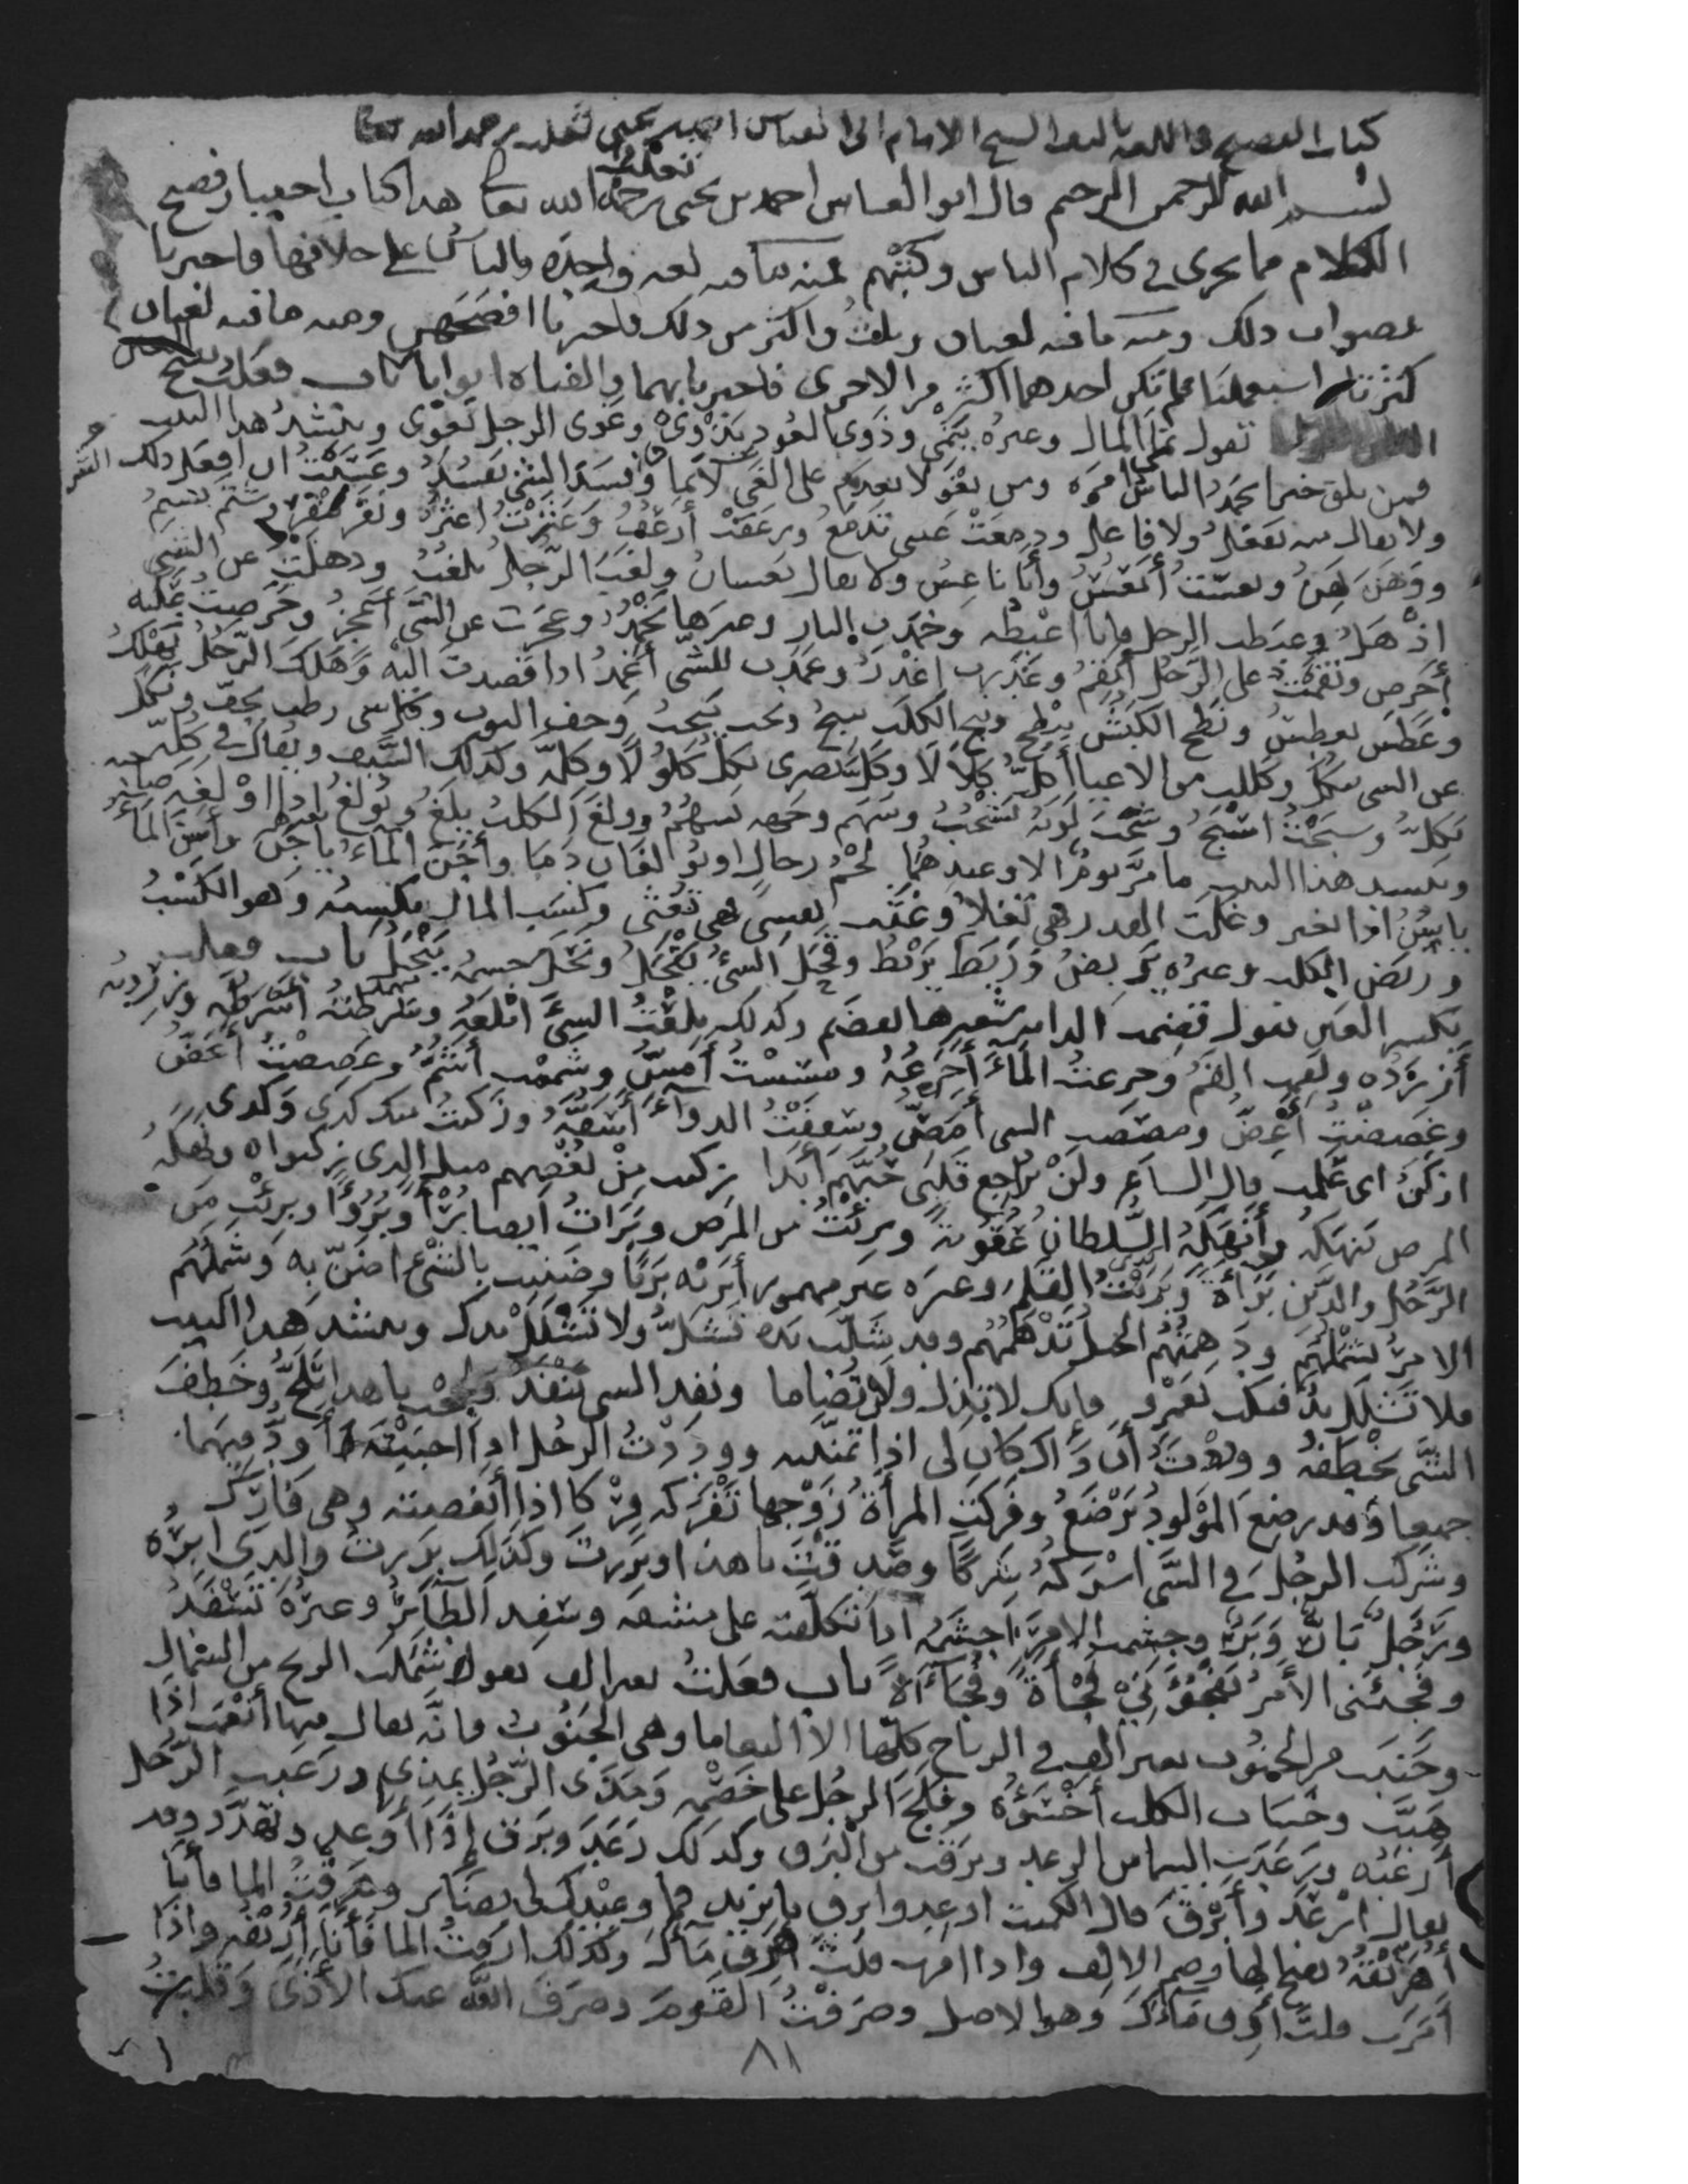 كتاب الفصيح في اللغه تاليف الشيخ الامام ابي العباس احمد بن يحيى ثعلب رحمه الله تعالى
بسم الله الرحمن الرحيم قال ابو العباس احمد بن يحيى ثعلب رحمه الله تعالى هذا كتاب اختيار فصيح
الكلام مما يجري في كلام الناس وكتبهم فمنه ما فيه لغه واحدة والناس على خلافها فاخبرنا
بصواب ذلك ومنه ما فيه لغتان وثلاث واكثر من ذلك فاخبرنا افصحهن ومنه ما فيه لغتان
كثرتا استعملتا فلم تكن احدهما اكثر من الاخرى فاخبرنا بهما والفناه ابوابا باب فعلت بفتح
العين تقول نمى المال وغيره ينمي وذوى العود يذوي وغوى الرجل يغوي وينشد هذا البيت
فمن يلق خيرا يحمد الناس امره ومن يغو لا يعدم على الغي لائما وفسد الشي يفسد وعسيت ان افعل ذلك
ولا يقال منه يفعل ولا فاعل ودمعت عيني تدمع ورعفت أرعف وعثرت اعثر ونفر ينفر وشتم يشتم
ووهن يهن ونعست أنعس وأنا ناعس ولا يقال نعسان ولغب الرجل يلغب وذهلت عن الشي
اذهل وغبطت الرجل فانا اغبطه وخمدت النار وغيرها تخمد وعجزت عن الشي أعجز وحرصت عليه
أحرص ونقمت على الرجل أنقم وغدرت به اغدر وعمدت للشي أعمد اذا قصدت اليه وهلك الرجل يهلك
وعطس يعطس ونطح الكبش ينطح ونبح الكلب ينبح ونحت ينحت وجف الثوب وكل شي رطب يجف ونكل
عن الشي ينكل وكللت من الاعيا أكل كلالا وكل بصري يكل كلولا وكلة وكذلك السيف ويقال في كله
يكل وسبحت اسبح وشحب لونه يشحب وسهم وجهه يسهم وولغ الكلب يلغ ويولغ اذا اولغه صاحبه
وينشد هذا البيت ما مر يوم الا وعندهما لحم رجال او يولغان دما وأجن الماء يأجن وأسن الماء
يأسن اذا تغير وغلت القدر فهي تغلي وغثت نفسي فهي تغثي وكسب المال يكسبه وهو الكسب
وربض الكلب وغيره يربض وربط يربط وقحل الشي يقحل ونحل جسمه ينحل باب فعلت
بكسر العين تقول قضمت الدابة شعيرها تقضم وكذلك بلعت الشي ابلعه وسرطته أسرطه وزردته
أزرده ولقمت القم وجرعت الماء أجرعه ومسست أمس وشممت أشم وعضضت أعض
وغصصت أغص ومصصت الشي أمصه وسففت الدواء أسفه وزكنت منك كذى وكذى
ازكن اي علمت قال الشاعر ولن يراجع قلبي حبهم أبدا زكنت من بغضهم مثل الذي زكنوا وقد نهكه
المرض ينهكه وأنهكه السلطان عقوبة وبرئت من المرض وبرأت ايضا برءا وبروءا وبرئت من
الرجل والدين براءة وبريت القلم وغيره غير مهموز أبريه بريا وضننت بالشي اضن به وشملهم
الامر يشملهم ودهمتهم الخيل تدهمهم وقد شلت يده تشل ولا تشلل يدك وينشد هذا البيت
فلا تشلل يد فتكت بعمرو فانك لا تذل ولن تضاما ونفد الشي ينفد ولججت يا هذا تلج وخطف
الشي يخطفه ووددت أن ذاك كان لي اذا تمنيته ووددت الرجل اذا احببته أود فيهما
جميعا وقد رضع المولود يرضع وفركت المرأة زوجها تفركه فركا اذا أبغضته وهي فارك
وشركت الرجل في الشي اشركه شركا وصدقت يا هذا وبررت وكذلك بررت والدي ابره
ورجل بار وبر وجشمت الامر اجشمه اذا تكلفته على مشقه وسفد الطائر وغيره يسفد
وفجئني الأمر يفجؤني فجأة وفجاءة باب فعلت بغير الف تقول شملت الريح من الشمال
وجنبت من الجنوب بغير الف في الرياح كلها الا النعاما وهي الجنوب فانه يقال فيها أنعمت اذا
هبت وخسات الكلب أخسؤه وفلج الرجل على خصمه ومذى الرجل يمذي ورعبت الرجل
أرعبه ورعدت السما من الرعد وبرقت من البرق وكذلك رعد وبرق اذا اوعد وتهدد وقد
يقال ارعد وأبرق قال الكميت ارعد وابرق يا يزيد فما وعيدك لي بضائر وهرقت الما فأنا
أهريقه بفتح الها وضم الالف واذا امرت قلت هرق ماءك وكذلك ارقت الما فأنا أريقه واذا
أمرت قلت أرق ماءك وهو الاصل وصرفت القوم وصرف الله عنك الأذى وقلبت
٨١